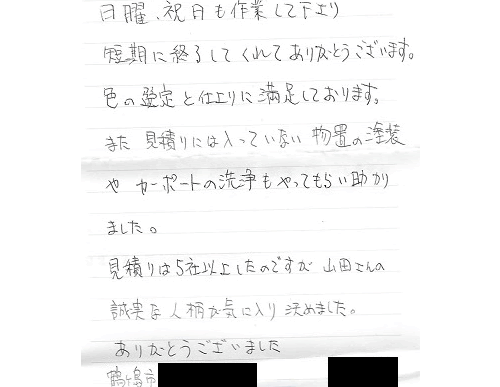 日曜、祝日も作業して下より
短期に終らしてくれてありがとうございます。
色の選定と仕上りに満足しております。
また見積りには入っていない物置の塗装
や カーポートの洗浄もやってもらい助かり
ました。
見積りは5社以上したのですが 山田さんの
誠実な人柄が気に入り決めました。
ありがとうございました
鶴ヶ島市